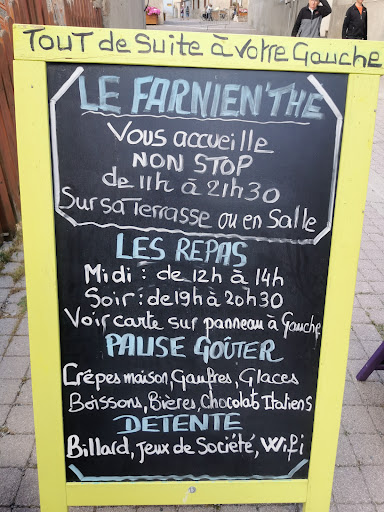 Tout de Suite à Votre Gauche
LE FARNIEN'THE
Vous accueille
NON STOP
de 11h à 21h30
Sur sa Terrasse ou en Salle
LES REPAS
Midi : de 12h à 14h
Soir : de 19h à 20h30
Voir carte sur panneau à Gauche
PAUSE GOÛTER
Crêpes maison, Gaufres, Glaces
Boissons, Bières, Chocolats Italiens
DETENTE
Billard, Jeux de Société, Wifi